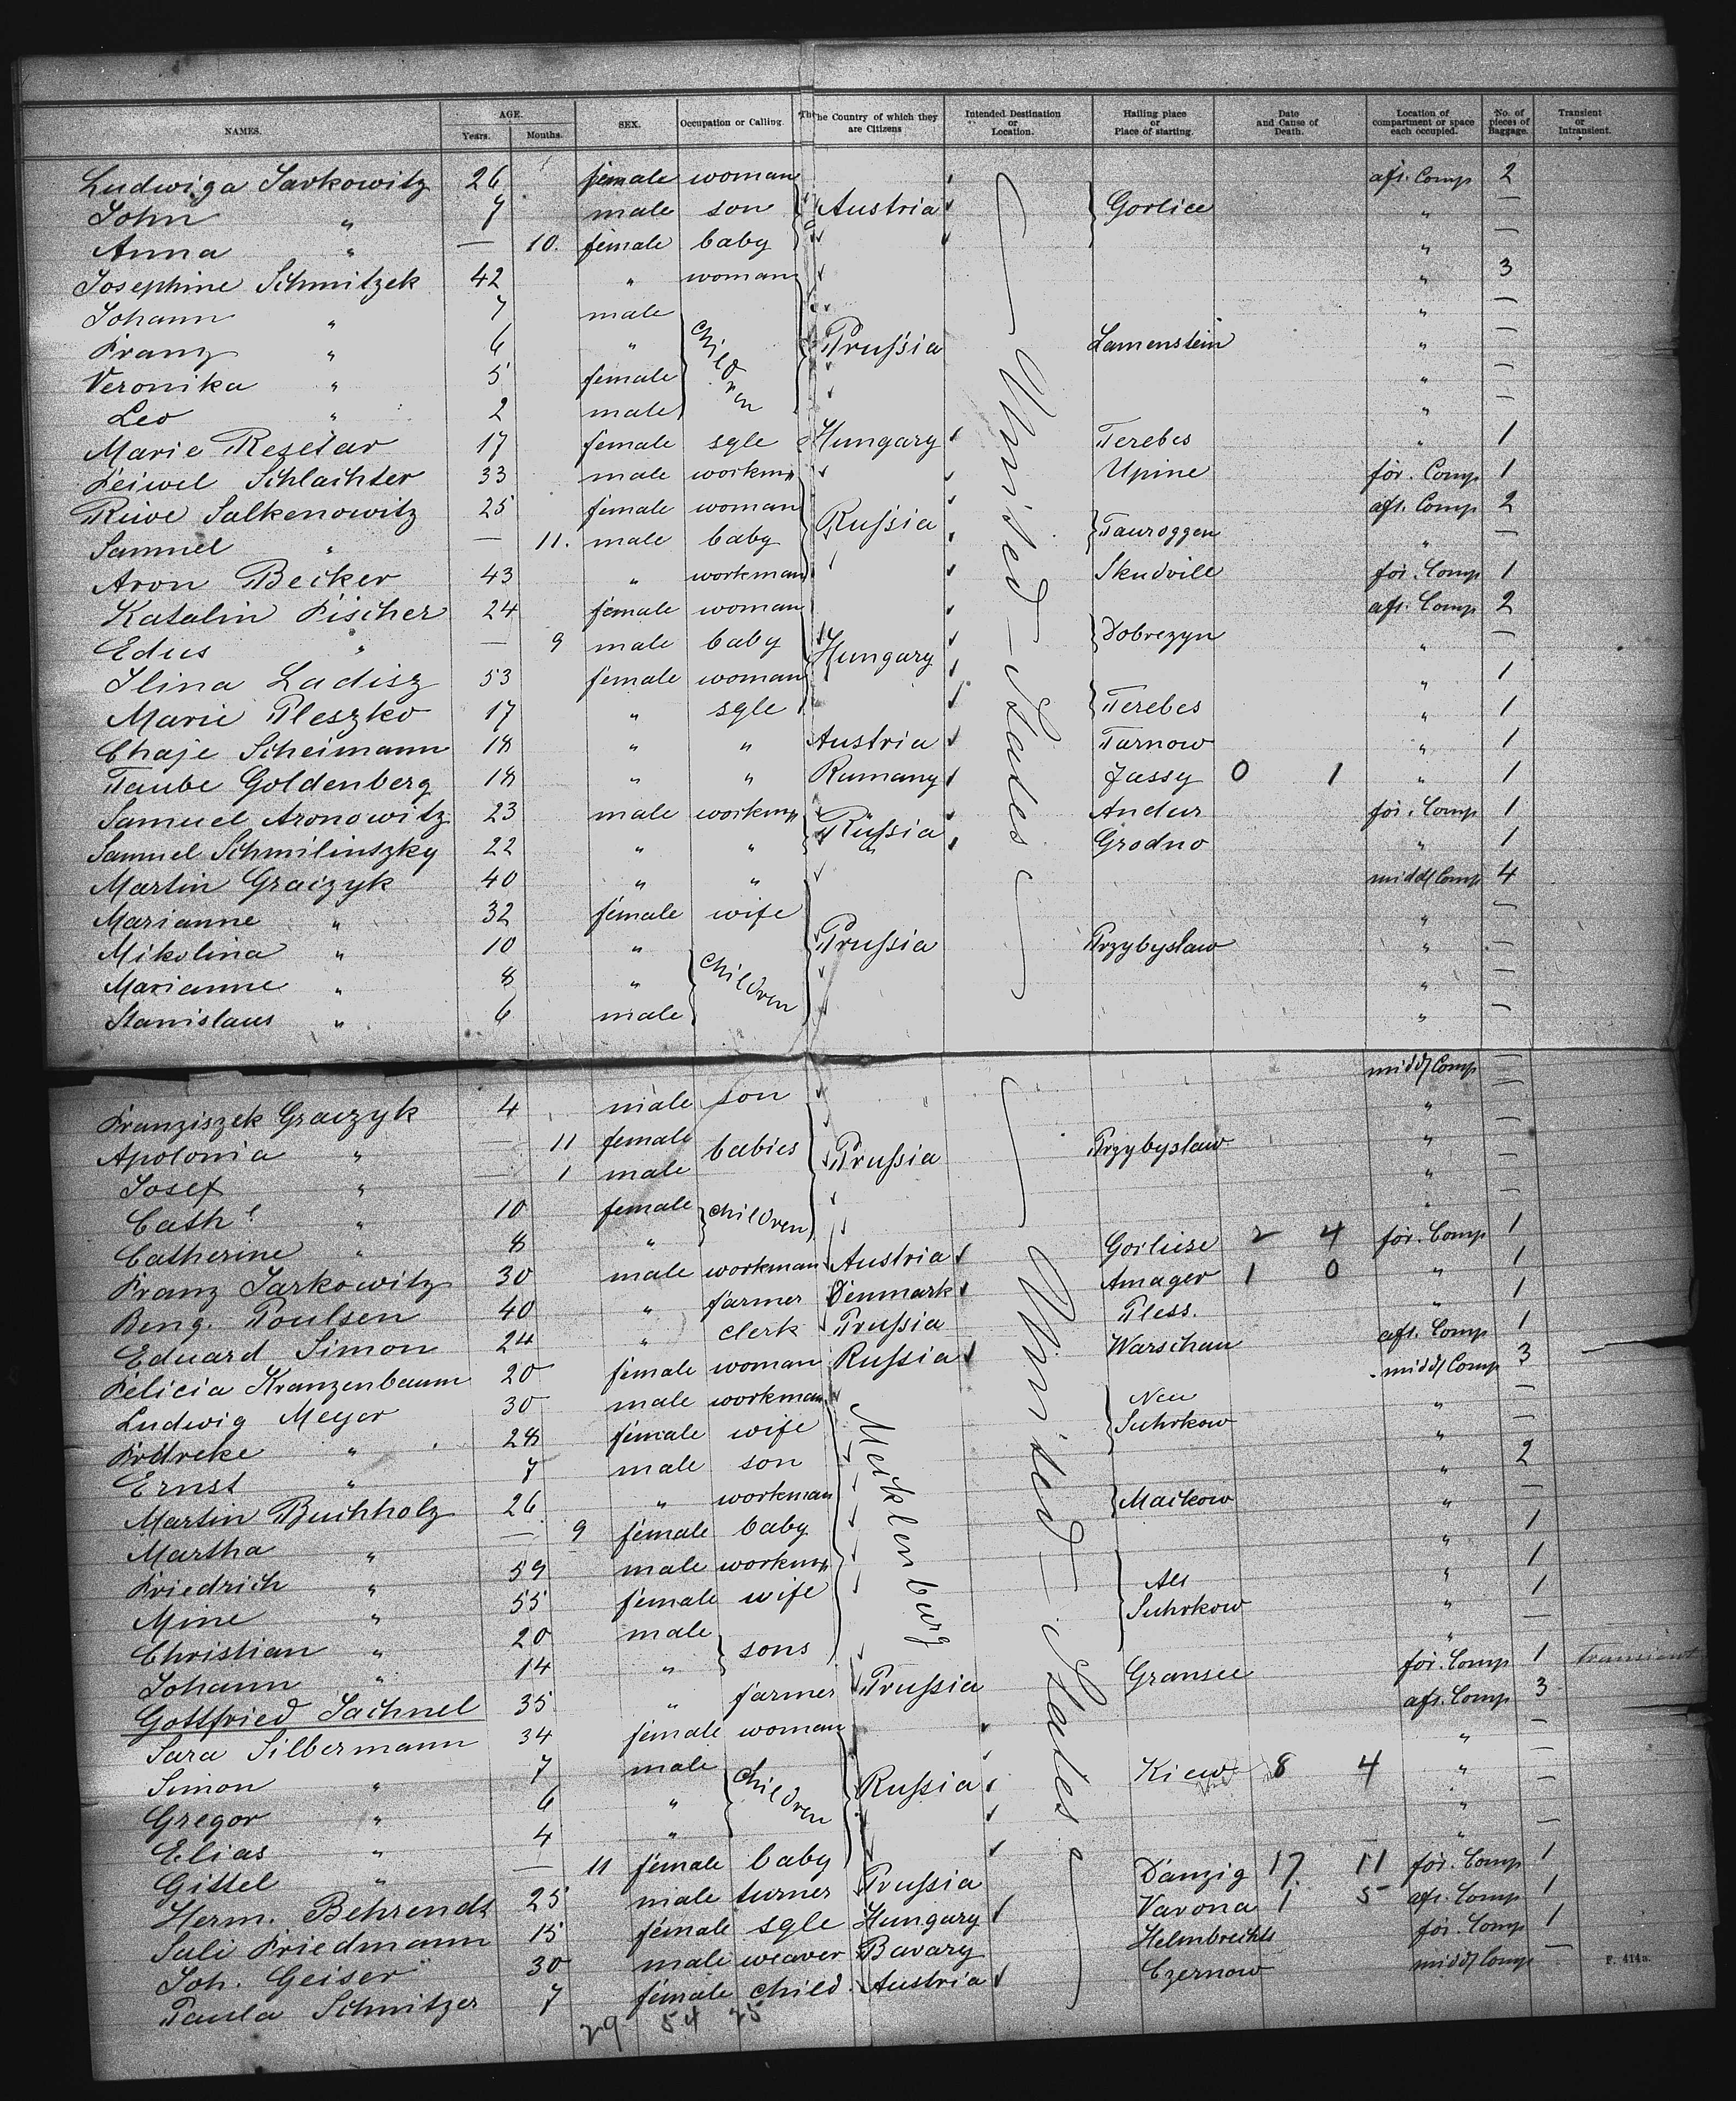 NAMES. AGE. Years. Months. SEX. Occupation or Calling. The Country of which they are Citizens Intended Destination or Location. Hailing place or Place of starting. Date and Cause of Death. Location of compartment or space each occupied. No. of pieces of Baggage. Transient or Intransient.
Ludwiga Jarkowitz 26 female woman aft. Comp 2
John " 7 male son Austria Gorlice " —
Anna " — 10. female baby " —
Josephine Schmitzek 42 " woman " 3
Johann " 7 male " —
Franz " 6 " children Prußia Lamenstein " —
Veronika " 5 female " —
Leo " 2 male " —
Marie Resetar 17 female sgle Hungary Terebes " 1
Leiwel Schlachter 33 male workmn Upine for. Comp 1
Riwe Salkenowitz 25 female woman Rußia aft. Comp 2
Samuel " — 11. male baby Tauroggen " —
Aron Becker 43 " workman Skudvill for. Comp 1
Katalin Fischer 24 female woman aft. Comp 2
Edus " — 9 male baby Hungary Dobrezyn " —
Ilina Ladisz 53 female woman " 1
Marie Pleszko 17 " sgle Terebes " 1
Chaje Scheimann 18 " " Austria Tarnow " 1
Taube Goldenberg 18 " " Rumany Jassy 0 1 " 1
Samuel Aronowitz 23 male workmn Rußia Andur for. Comp 1
Samuel Schmilinszky 22 " " " Grodno " 1
Martin Graczyk 40 " " midd/ Comp 4
Marianne " 32 female wife " —
Mikolina " 10 " children Prußia Przybyslaw " —
Marianne " 8 " " —
Stanislaus " 6 male " —
United-States
Franziszek Graczyk 4 male son midd/ Comp —
Apolonia " — 11 female babies Prußia Przybyslaw " —
Josef " — 1 male " —
Cath. " 10 female children " —
Catherine " 8 " " —
Franz Jarkowitz 30 male workman Austria Gorliese 2 4 for. Comp 1
Beng. Poulsen 40 " farmer Denmark Amager 1 0 " 1
Eduard Simon 24 " clerk Prußia Pless. " 1
Felicia Kranzenbaum 20 female woman Rußia Warschau aft. Comp 1
Ludwig Meyer 30 male workman Mecklenburg Neu Suhrkow midd/ Comp 3
Frdreke " 28 female wife " —
Ernst " 7 male son " —
Martin Buchholz 26 " workman Mackow " 2
Martha " — 9 female baby " —
Friedrich " 59 male workmn Alt Suhrkow " 1
Mine " 55 female wife " 1
Christian " 20 male sons " 1
Johann " 14 " " —
Gottfried Jachnel 35 " farmer Prußia Gransee for. Comp 1 transient
Sara Silbermann 34 female woman aft. Comp 3
Simon " 7 male children Rußia Kiew 8 4 " —
Gregor " 6 " " —
Elias " 4 " " —
Gittel " — 11 female baby " —
Herm. Behrendt 25 male turner Prußia Danzig 17. 11 for. Comp 1
Sali Friedmann 15 female sgle Hungary Varona 1 5 aft. Comp 1
Joh. Geiser 30 male weaver Bavary Helmbrechts for. Comp 1
Paula Schnitzer 7 female child Austria Czernow midd/ Comp —
United-States
F. 414a.
29 54 25